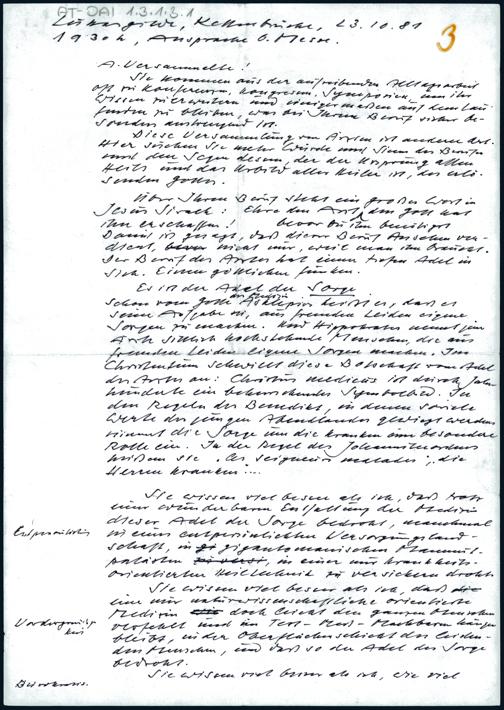 AT-DAI 1.3.1.3.1
Lukasgilde, Kettenbrücke, 23.10.81
3
19.30 h, Ansprache b. Messe.
A. Versammelte!
Sie kommen aus der aufreibenden Alltagsarbeit
oft zu Konferenzen, Kongressen, Symposien um ihr
Wissen zu erweitern und einigermaßen auf dem Lau-
fenden zu bleiben, was bei Ihrem Beruf sicher be-
sonders anstrengend ist.
Diese Versammlung von Ärzten ist anderer Art.
Hier suchen Sie mehr Würde und Sinn des Berufes
und den Segen dessen, der der Ursprung allen
Heils und das Urbild aller Heiler ist, des erlö-
senden Gottes.
Über Ihrem Beruf steht ein großes Wort in
Jesus Sirach: Ehre den Arzt, denn Gott hat
ihn erschaffen! bevor du ihn benötigst
Damit ist gesagt, daß dieser Beruf Ansehen ver-
dient, nicht nur, weil man ihn braucht.
Der Beruf des Arztes hat einen tiefen Adel in
sich. Einen göttlichen Funken.
Es ist der Adel der Sorge
der Medizin
Schon vom Gott Asklepios heißt es, daß es
seine Aufgabe sei, aus fremden Leiden eigene
Sorgen zu machen. Und Hippokrates nennt die
Ärzte sittlich hochstehende Menschen, die aus
fremden Leiden eigene Sorgen machen. Im
Christentum schwillt diese Botschaft vom Adel
des Arztes an: Christus medicus ist durch Jahr-
hunderte ein beherrschendes Symbolbild. In
den Regeln des Benedikt, in denen so viele
Werte des jungen Abendlandes geprägt werden
nimmt die Sorge um die Kranken eine besondere
Rolle ein. In der Regel des Johanniterordens
heißen sie „les seigneurs malades", „die
Herren Kranken"...
Sie wissen viel besser als ich, daß trotz
einer wunderbaren Entfaltung der Medizin
dieser Adel der Sorge bedroht, manchmal
Entpersönlichte
in einer entpersönlichten Versorgungsland-
schaft, in gigantomanischen Mammut-
spitälern, in einer nur krankheits-
orientierten Heiltechnik zu versickern droht.
Sie wissen viel besser als ich, daß
eine nur naturwissenschaftliche orientierte
Vordergründig-
keit
Medizin doch leicht den ganzen Menschen
verfehlt und im Test-Mess-Machbaren hängen
bleibt, in der Oberflächenschicht des leiden-
den Menschen, und daß so der Adel der Sorge
bedroht.
Bürokratie.
Sie wissen viel besser als ich, wie viel